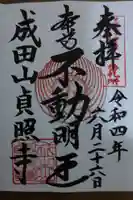 奉拝
令和四年
六月二十六日
本尊
不動明王
成田山貞照寺